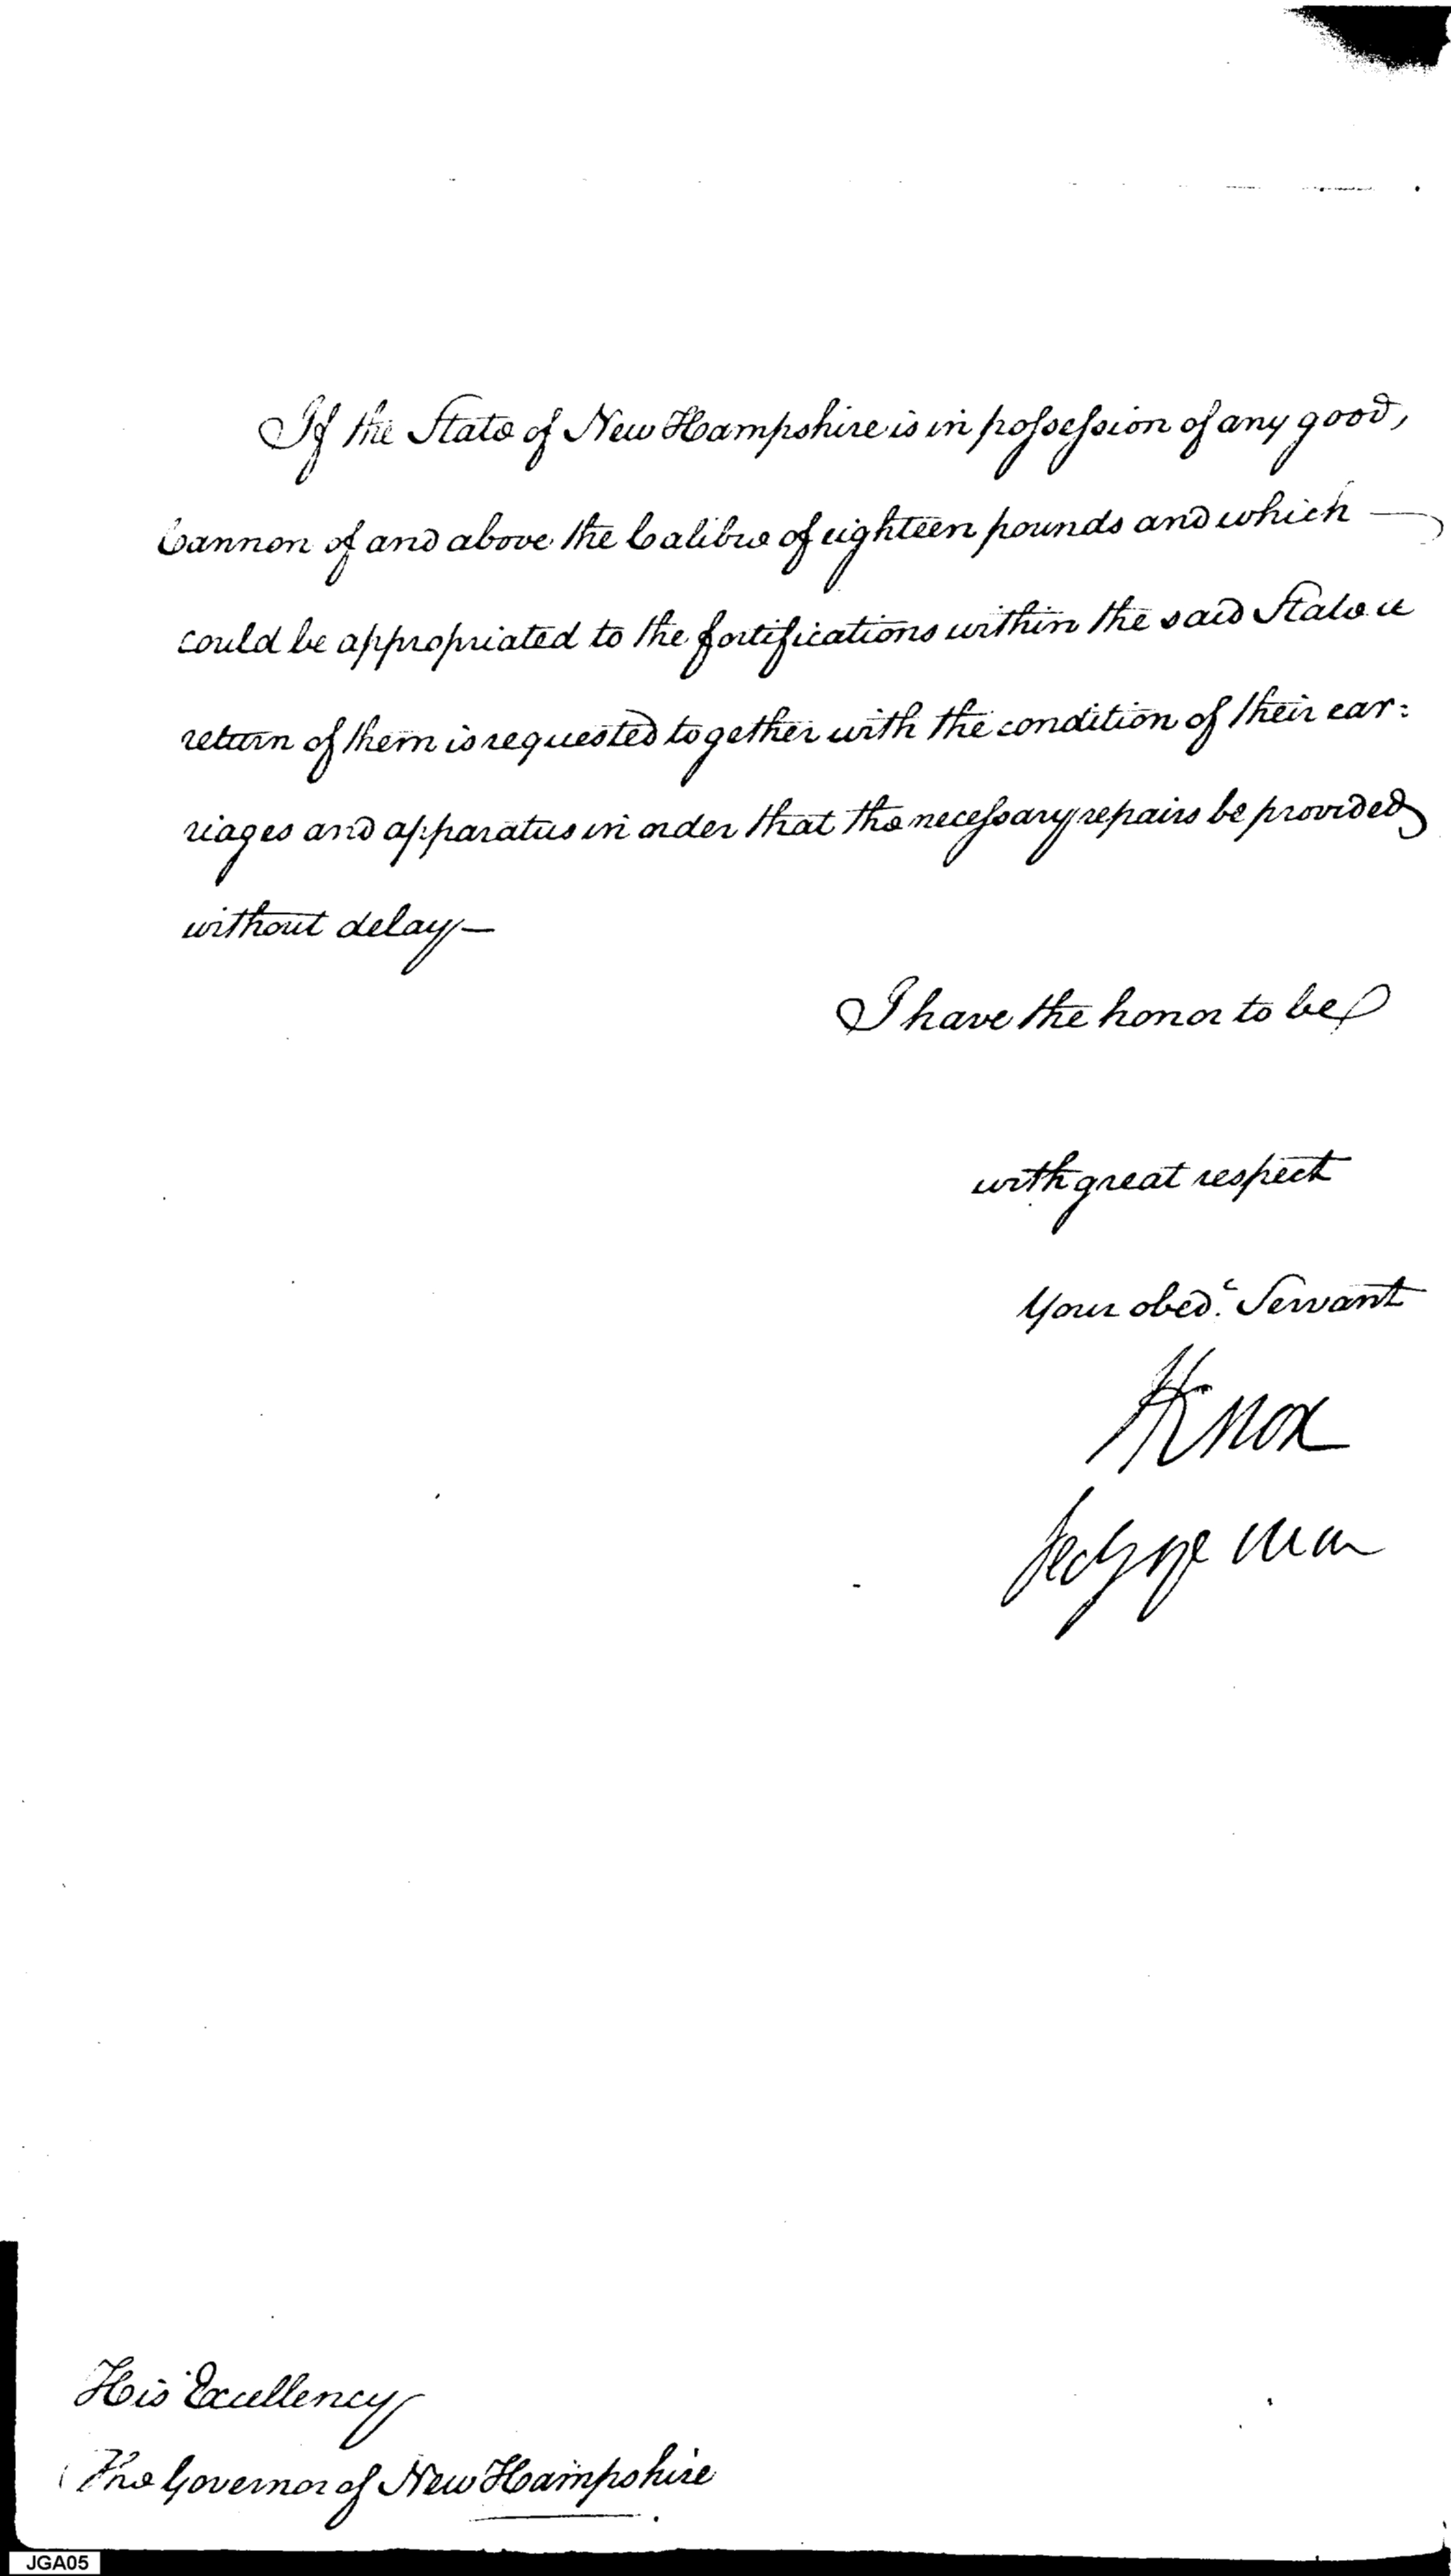 If the State of New Hampshire is in possession of any good,
Cannon of and above the Calibre of eighteen pounds and which —
could be appropriated to the fortifications within the said State a
return of them is requested together with the condition of their car:
riages and apparatus in order that the necessary repairs be provided
without delay —
I have the honor to be
with great respect
Your obed.t Servant
HKnox
Secy of War
His Excellency
The Governor of New Hampshire
JGA05